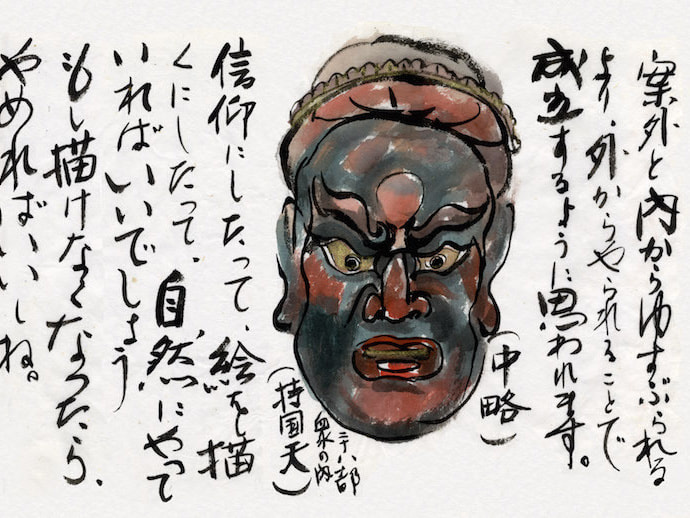 案外と内からゆすぶられる
より、外からやられることで
成立するように思われます。
(中略)
二十八部
衆の内
(持国天)
信仰にしたって、絵を描
くにしたって、自然にやって
いればいいでしょう
もし描けなくなったら、
やめればいいしね。